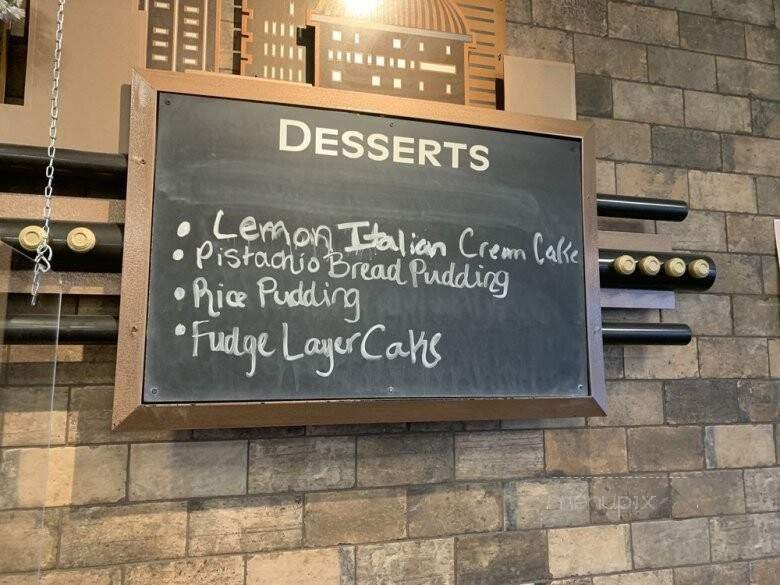 DESSERTS
• Lemon Italian Crem Cake
• Pistachio Bread Pudding
• Rice Pudding
• Fudge Layer Cake
menupix